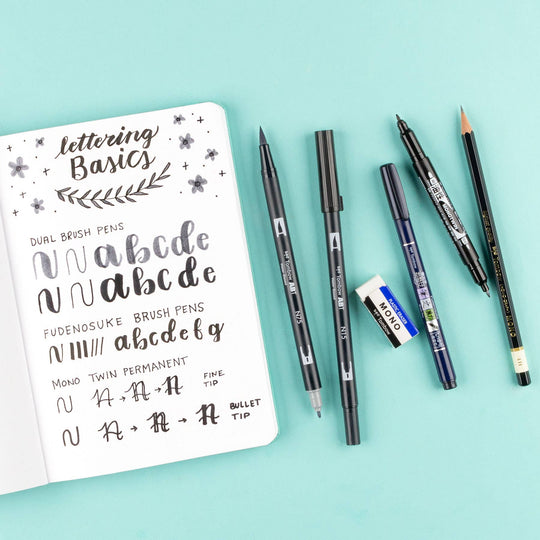 lettering
Basics
DUAL BRUSH PENS
abcde
abcde
FUDENOSUKE BRUSH PENS
abcdefg
MONO TWIN PERMANENT
A → A → A FINE TIP
A → A → A BULLET TIP
Tombow ABT
N75
Tombow ABT
N15
MONO
MONO